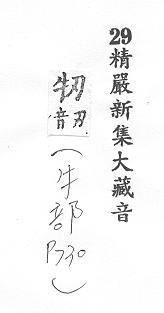 29精嚴新集大藏音
牣音刃(牛部P730)